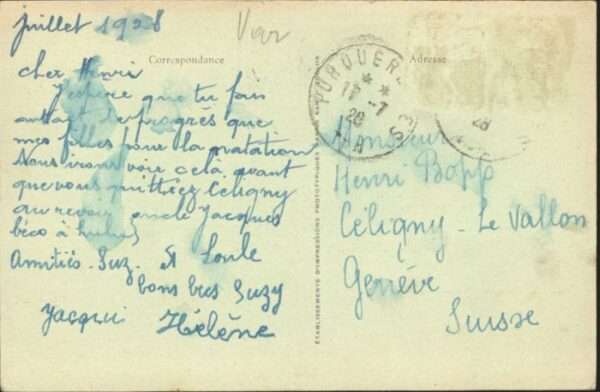 juillet 1928
Var
Correspondance
Adresse
cher Henri
J'espère que tu fais
autant de progrès que
mes filles pour la natation
Nous irons voir cela, avant
que vous quittiez Céligny
au revoir, oncle Jacques
béco à
Amitiés. Suz. et Loule
bons bces Suzy
Jacqui Hélène
PORQUEROLLES
17 -7
28
VAR
28
Monsieur
Henri Bopp
Céligny - Le Vallon
Genève
Suisse
ÉTABLISSEMENTS D'IMPRESSIONS PHOTOTYPIQUES